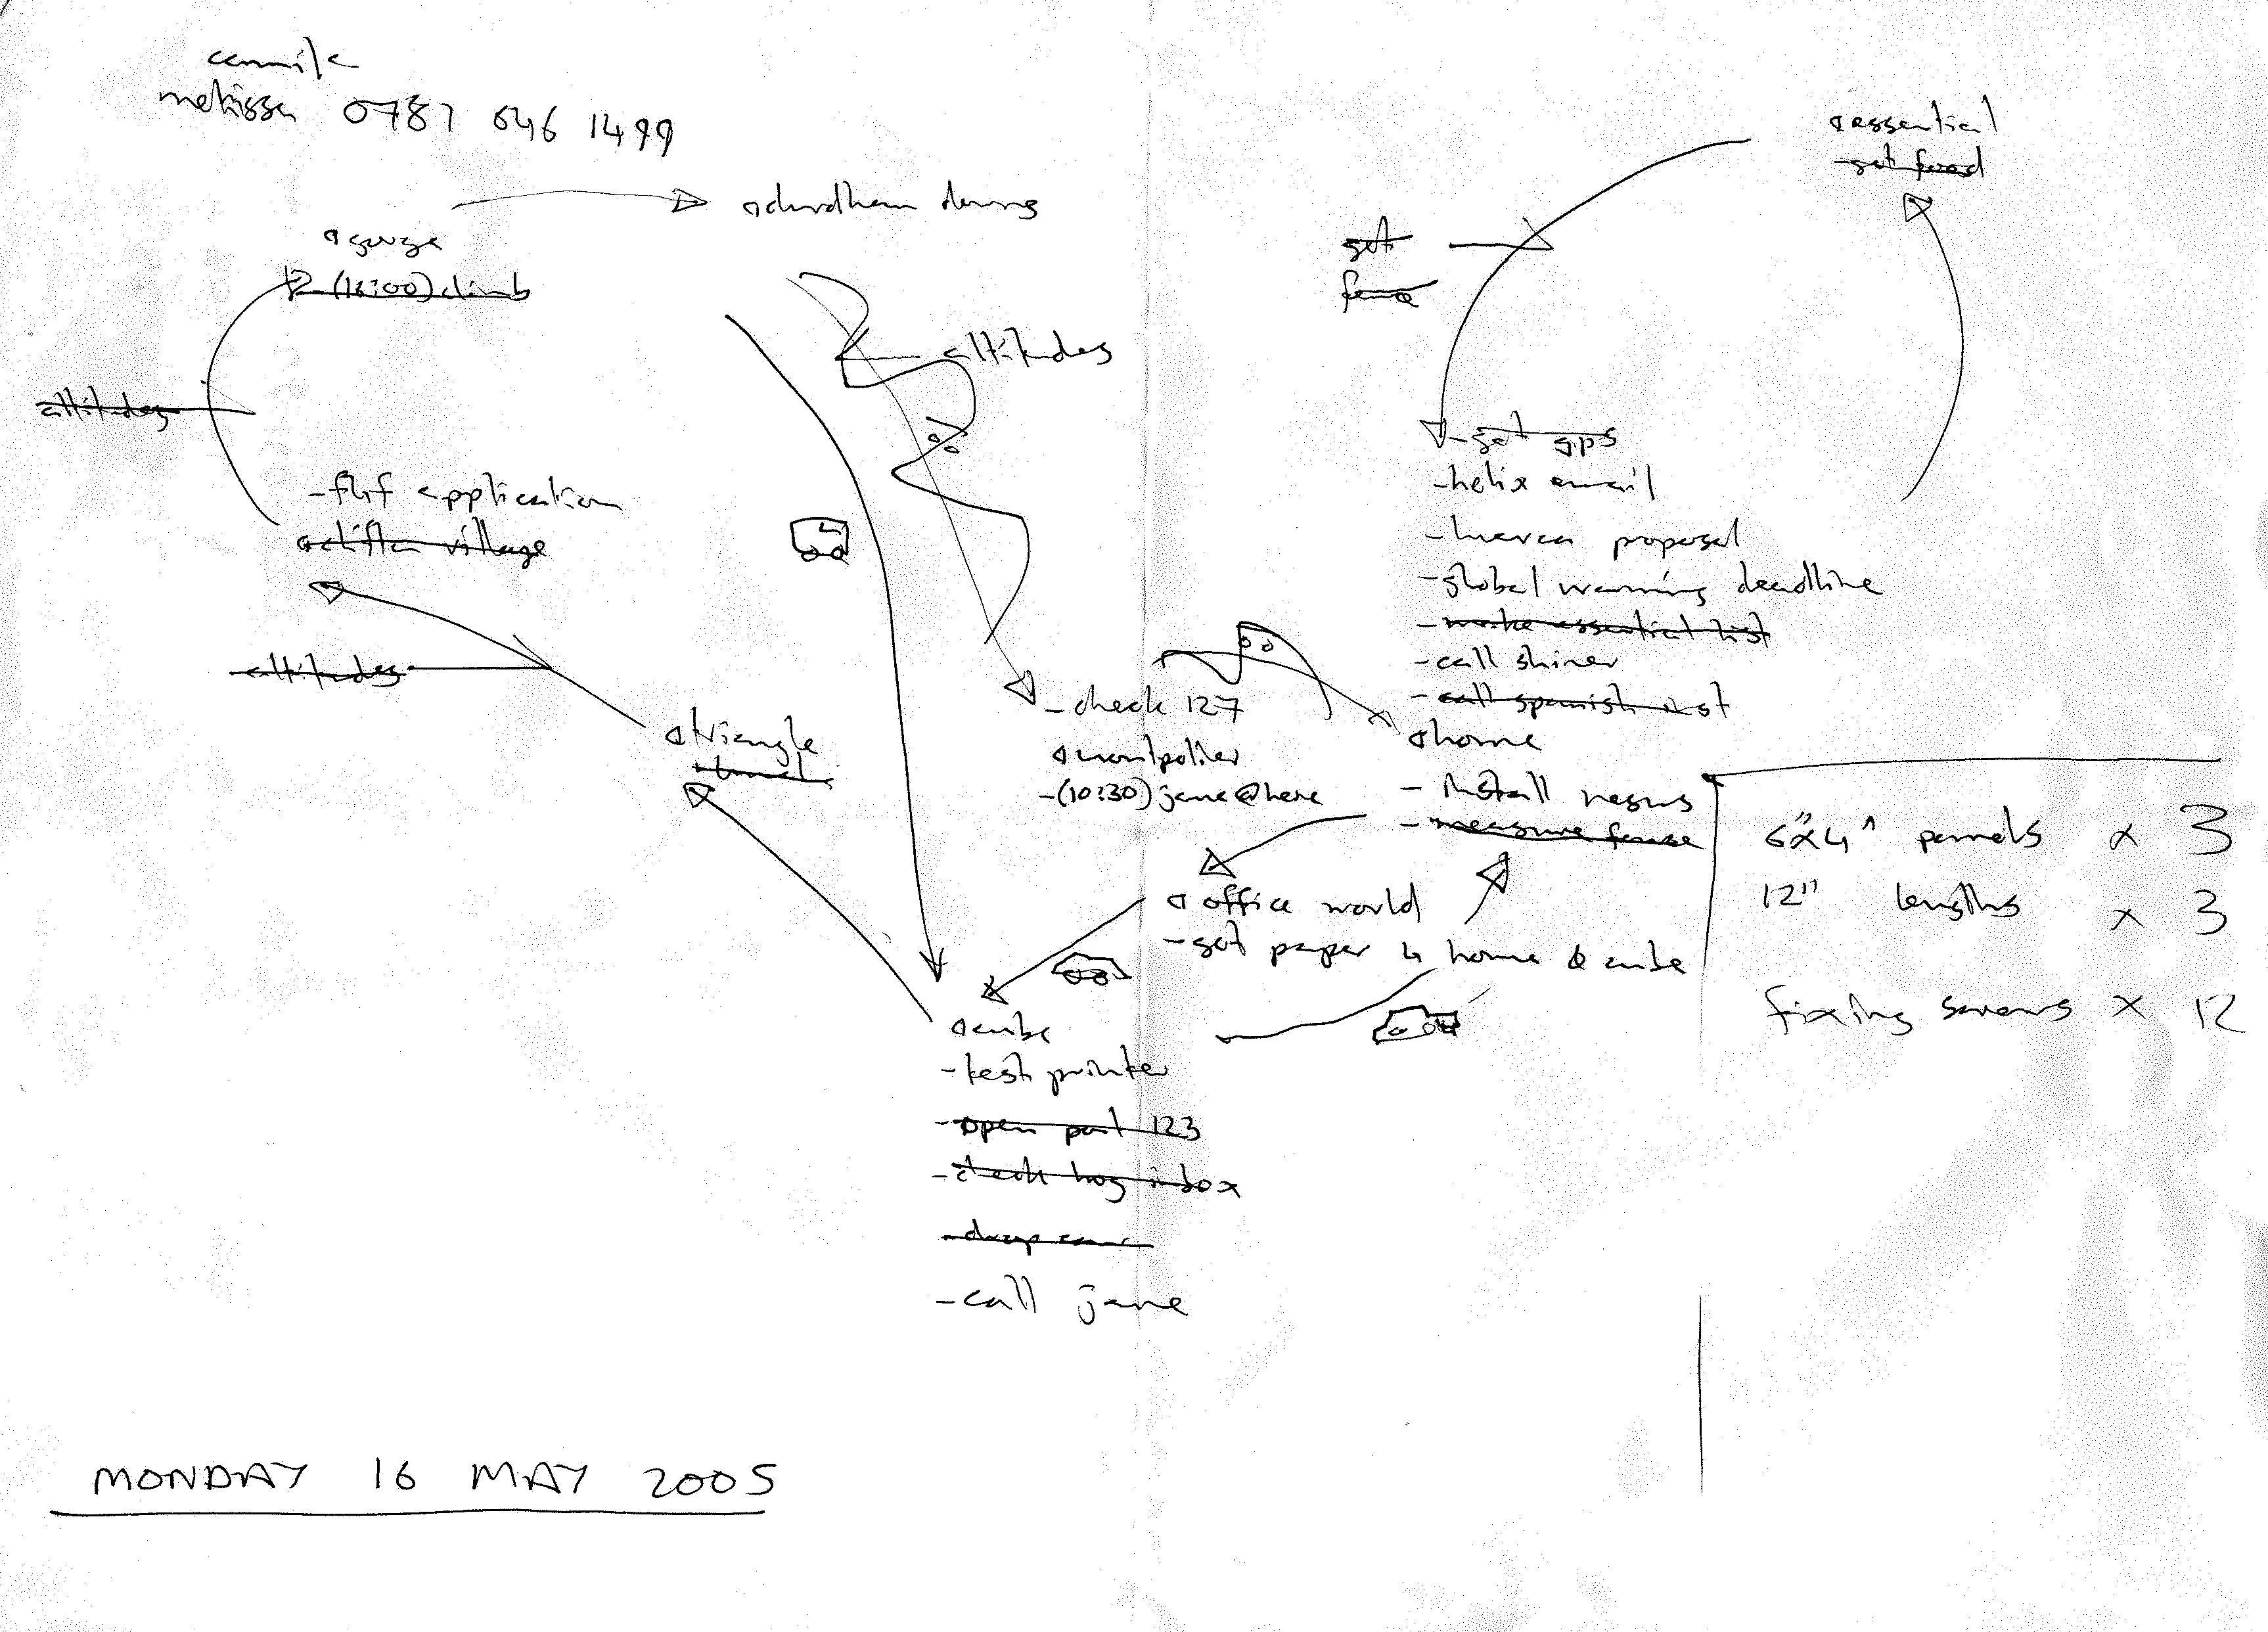 camila
melissa 0787 646 1499
@essential
get food
@durdham downs
@gorge
(16:00) climb
get
fence
altitudes
altitudes
- get gps
- helix email
- application
@clifton village
- proposal
- global warming deadline
- make essential list
- call shiner
altitudes
- call spanish inst
- check 127
@triangle
@home
lunch
@montpelier
- (10:30) jane @ here
- install
- measure fence
6"x4" pannels x 3
12" lengths x 3
@office world
- get paper 4 home & cube
fixing screws x 12
@cube
- test printer
- open port 123
- check hog inbox
- drop
- call jane
MONDAY 16 MAY 2005